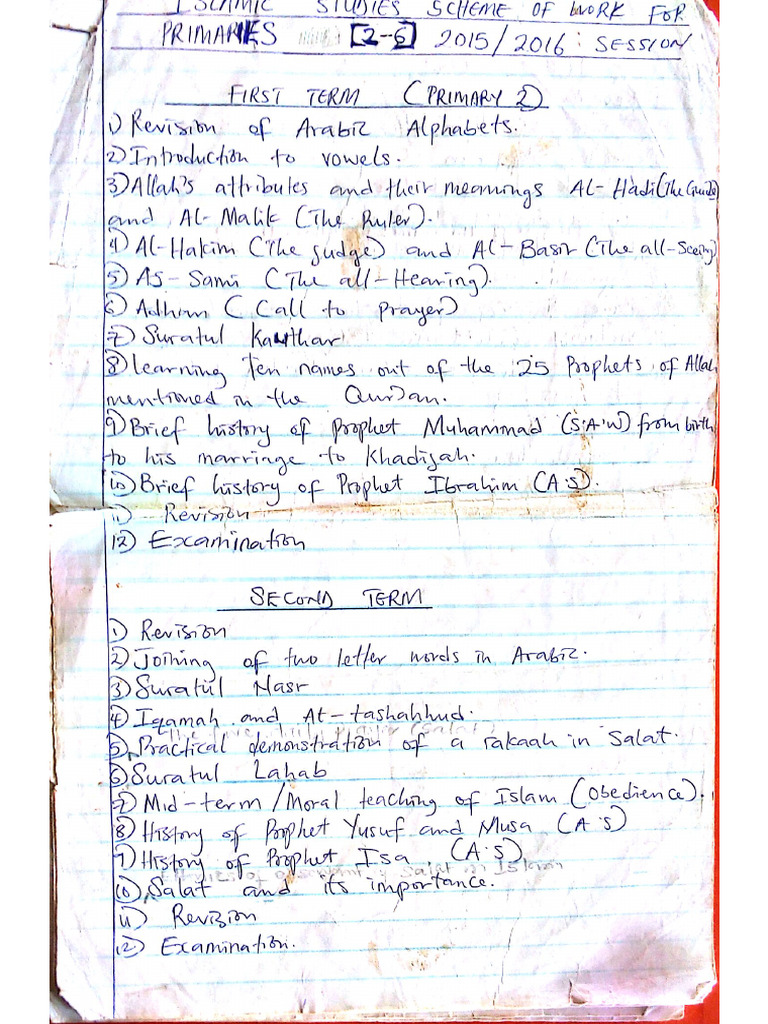 ISLAMIC STUDIES SCHEME OF WORK FOR
PRIMARIES [2-6] 2015/2016: SESSION
FIRST TERM (PRIMARY 2)
1) Revision of Arabic Alphabets.
2) Introduction to vowels.
3) Allah's attributes and their meanings Al-Hadi (The Guide)
and Al-Malik (The Ruler).
4) Al-Hakim (The judge) and Al-Basir (The all-Seeing)
5) As-Sami (The all-Hearing).
6) Adhan (Call to prayer)
7) Suratul Kauthar
8) Learning Ten names out of the 25 Prophets of Allah
mentioned in the Qur'an.
9) Brief history of prophet Muhammad (S.A.W) from birth
to his marriage to Khadijah.
10) Brief history of Prophet Ibrahim (A.S).
11) Revision
12) Examination
SECOND TERM
1) Revision
2) Joining of two letter words in Arabic.
3) Suratul Nasr
4) Iqamah and At-tashahhud.
5) Practical demonstration of a rakaah in Salat.
6) Suratul Lahab
7) Mid-term/Moral teaching of Islam (Obedience).
8) History of Prophet Yusuf and Musa (A.S)
9) History of Prophet Isa (A.S)
10) Salat and its importance.
11) Revision
12) Examination.